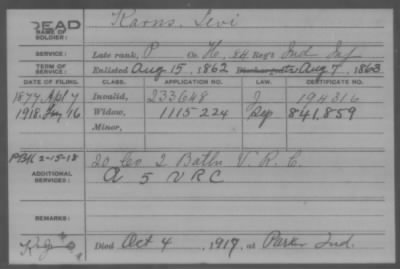 DEAD
NAME OF SOLDIER: Karns, Levi
SERVICE: Late rank, P Co. H, 84 Reg't Ind Inf
TERM OF SERVICE: Enlisted Aug 15, 1862 Discharged Aug 7, 1863
DATE OF FILING. CLASS. APPLICATION NO. LAW. CERTIFICATE NO.
1877 Apl 7 Invalid, 233648 J 194316
1918 16 Widow, 1115224 Sep 841,859
Minor,
2-15-18 20 Co. 2 Batln V. R. C.
ADDITIONAL SERVICES: A 5 VRC
REMARKS:
Died Oct 4, 1917, at Parker Ind.